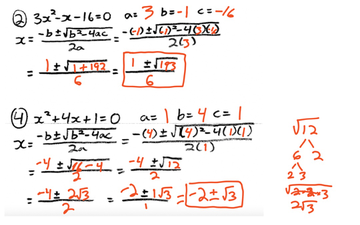 ② 3x²-x-16=0 a= 3 b=-1 c=-16
x= -b±√b²-4ac / 2a = -(-1)±√(-1)²-4(3)(-16) / 2(3)
= 1±√1+192 / 6 = 1 ±√193 / 6
④ x²+4x+1=0 a= 1 b= 4 c= 1
x= -b±√b²-4ac / 2a = -(4)±√(4)²-4(1)(1) / 2(1)
= -4 ±√16-4 / 2 = -4 ±√12 / 2
= -4± 2√3 / 2 = -2±1√3 / 1 = -2±√3
√12
6 2
2 3
√2·2·3
2√3